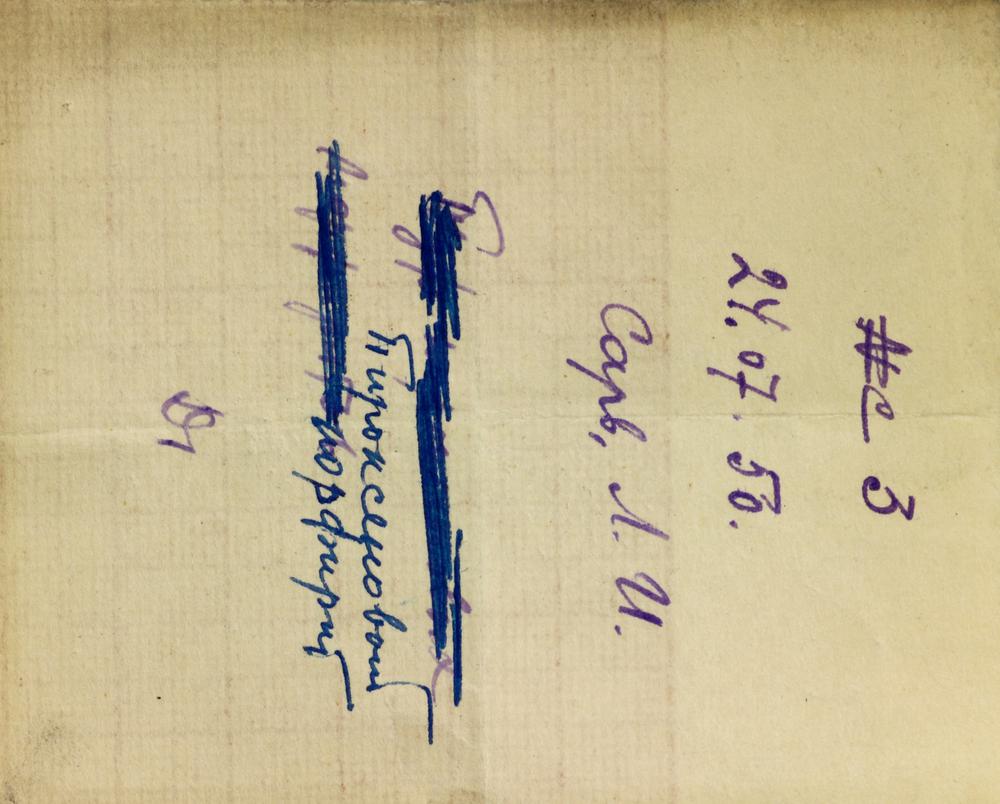 № 3
24.07.56.
Сарв, Л. И.
Пироксеновый
порфирит
D₁